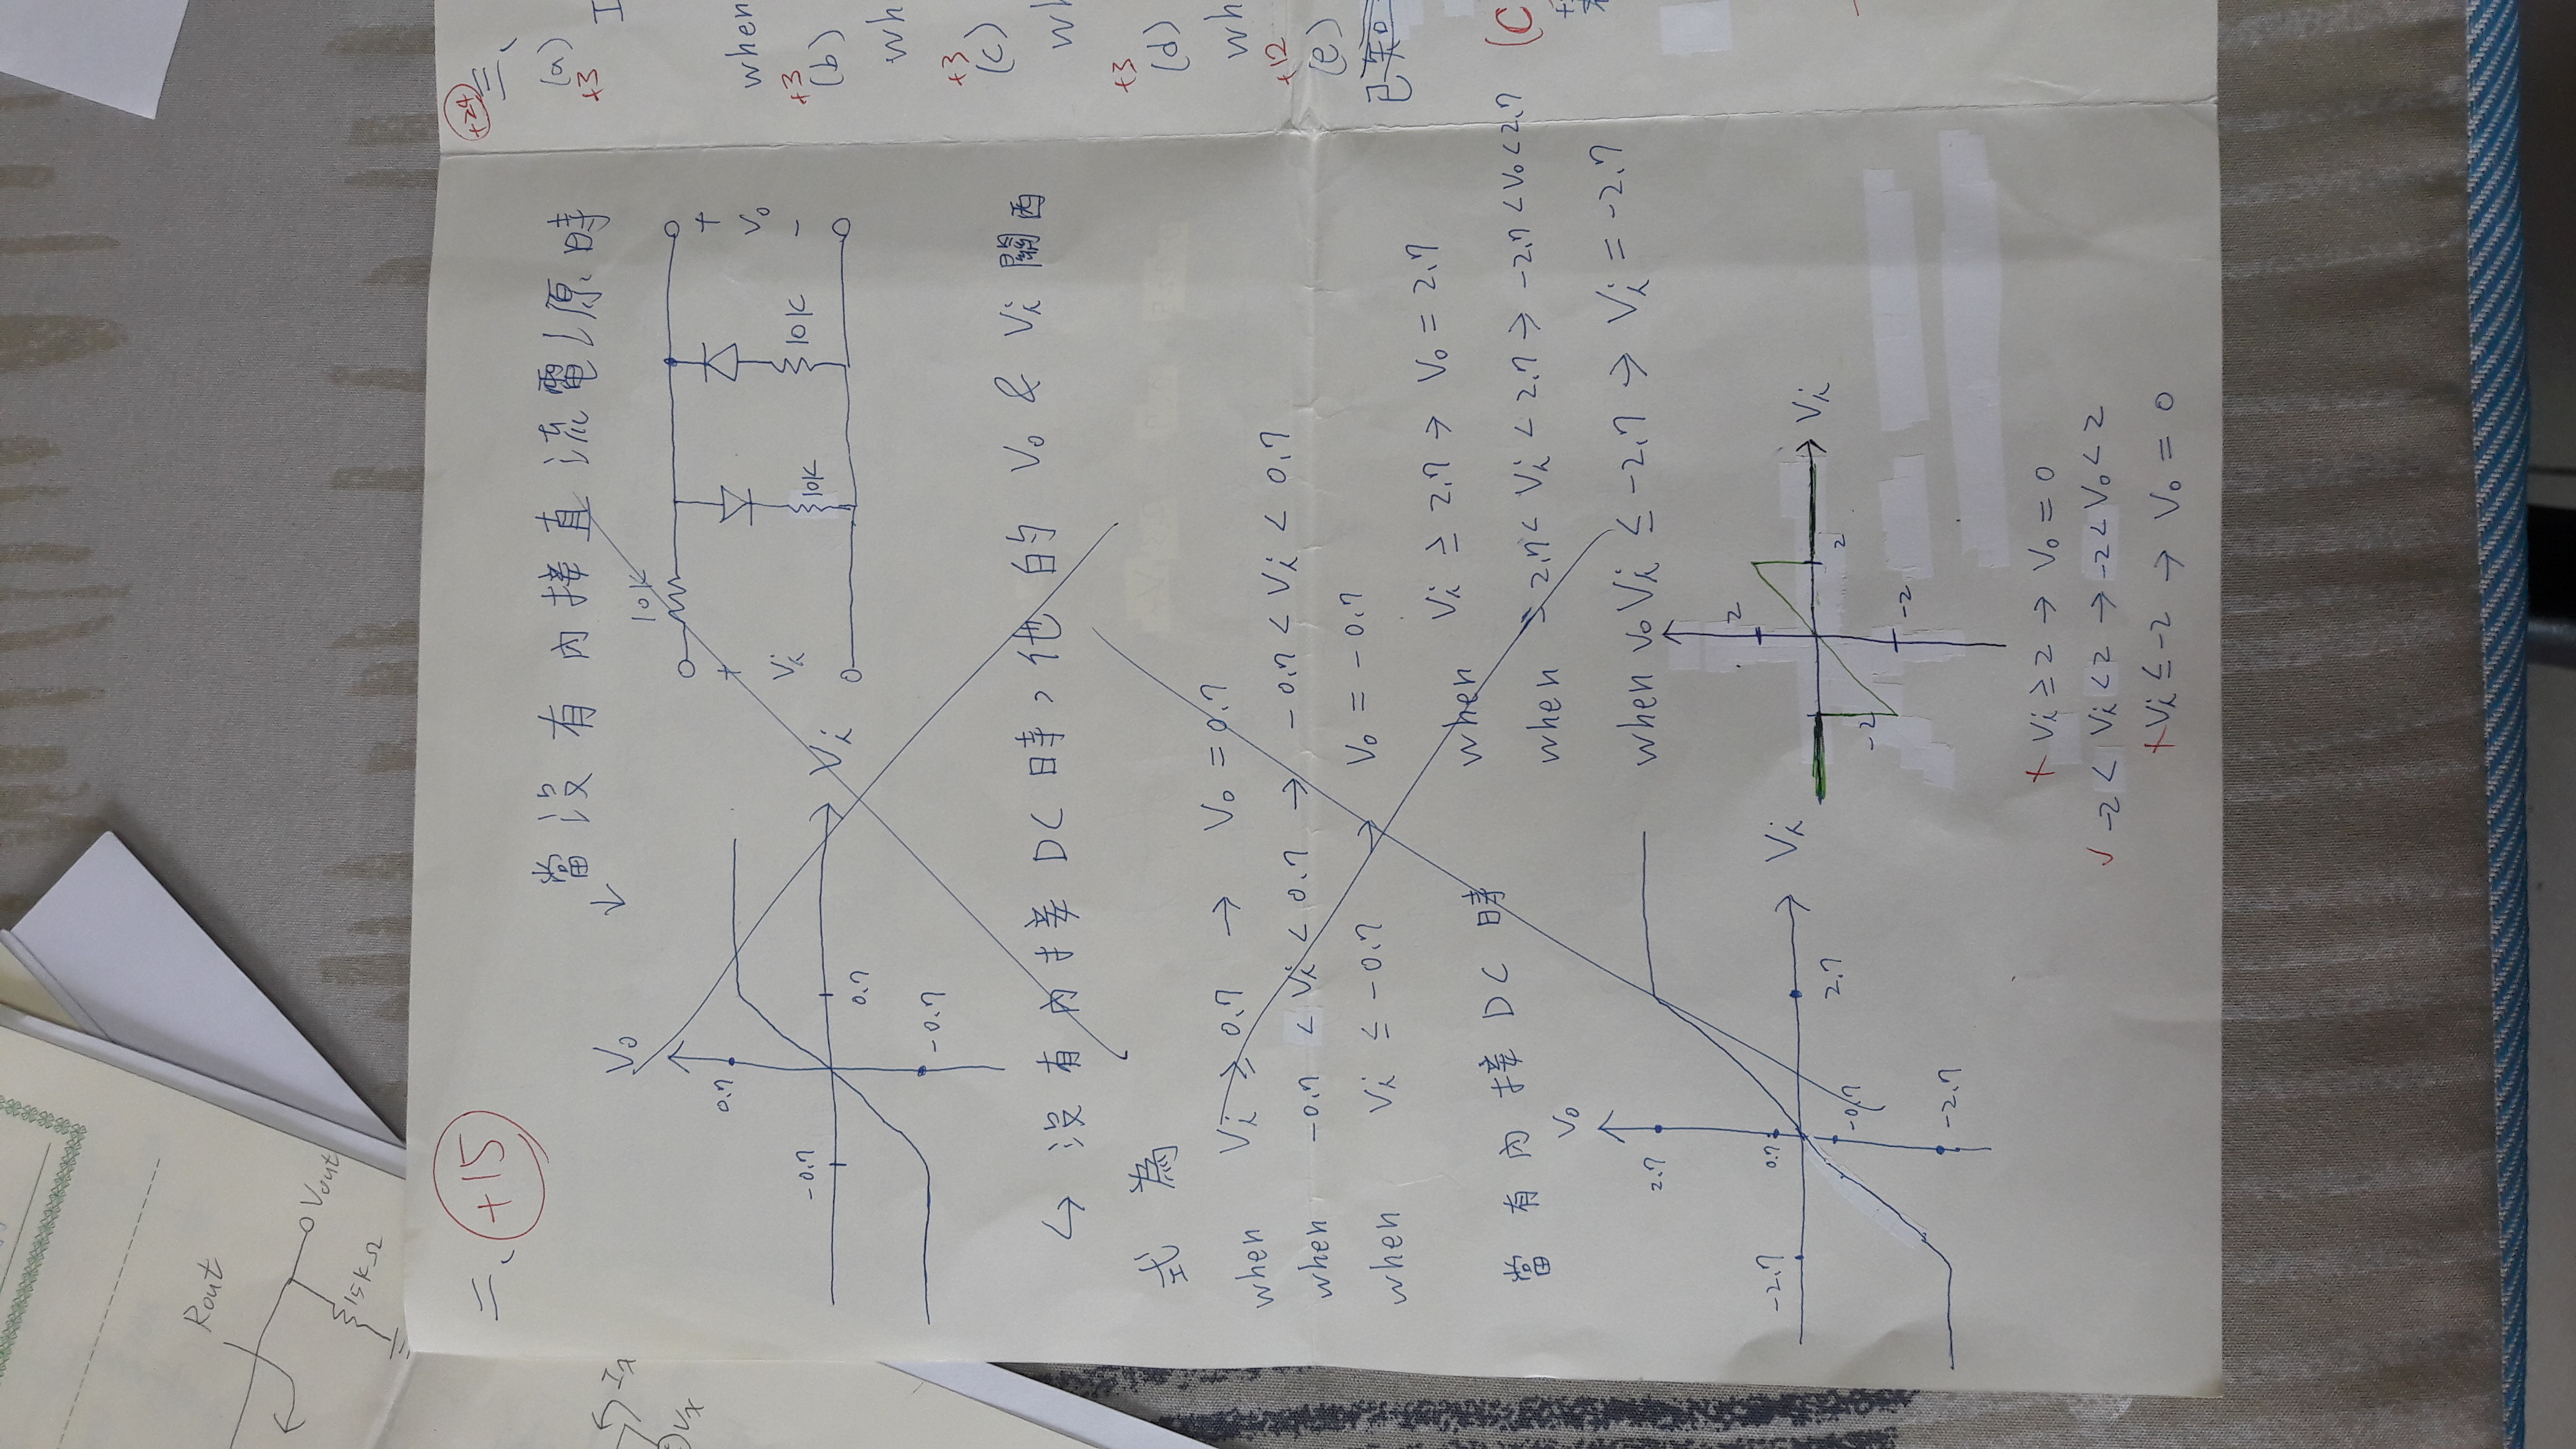 Rout
Vout
15KΩ
Ix
Vx
二、 +15
當沒有內接直流電源時
↓
Vo
0.7
-0.7
0.7
-0.7
Vi
10K
+
Vi
10K
10K
+
Vo
-
↳ 沒有內接DC時,他的 Vo & Vi 關西
式為
when Vi ≥ 0.7 → Vo = 0.7
when -0.7 < Vi < 0.7 → -0.7 < Vi < 0.7
when Vi ≤ -0.7 → Vo = -0.7
當有內接DC時
when Vi ≥ 2.7 → Vo = 2.7
when -2.7 < Vi < 2.7 → -2.7 < Vo < 2.7
when Vo Vi ≤ -2.7 → Vi = -2.7
Vo
2.7
-2.7
0.7
-0.7
2.7
-2.7
Vi
2
-2
2
-2
Vi
× Vi ≥ 2 → Vo = 0
✓ -2 < Vi < 2 → -2 < Vo < 2
× Vi ≤ -2 → Vo = 0
+24
三、
(a)
+3
I
when
+3
(b)
wh
+3
(c)
wh
+3
(d)
wh
+12
(e)
已知
(C